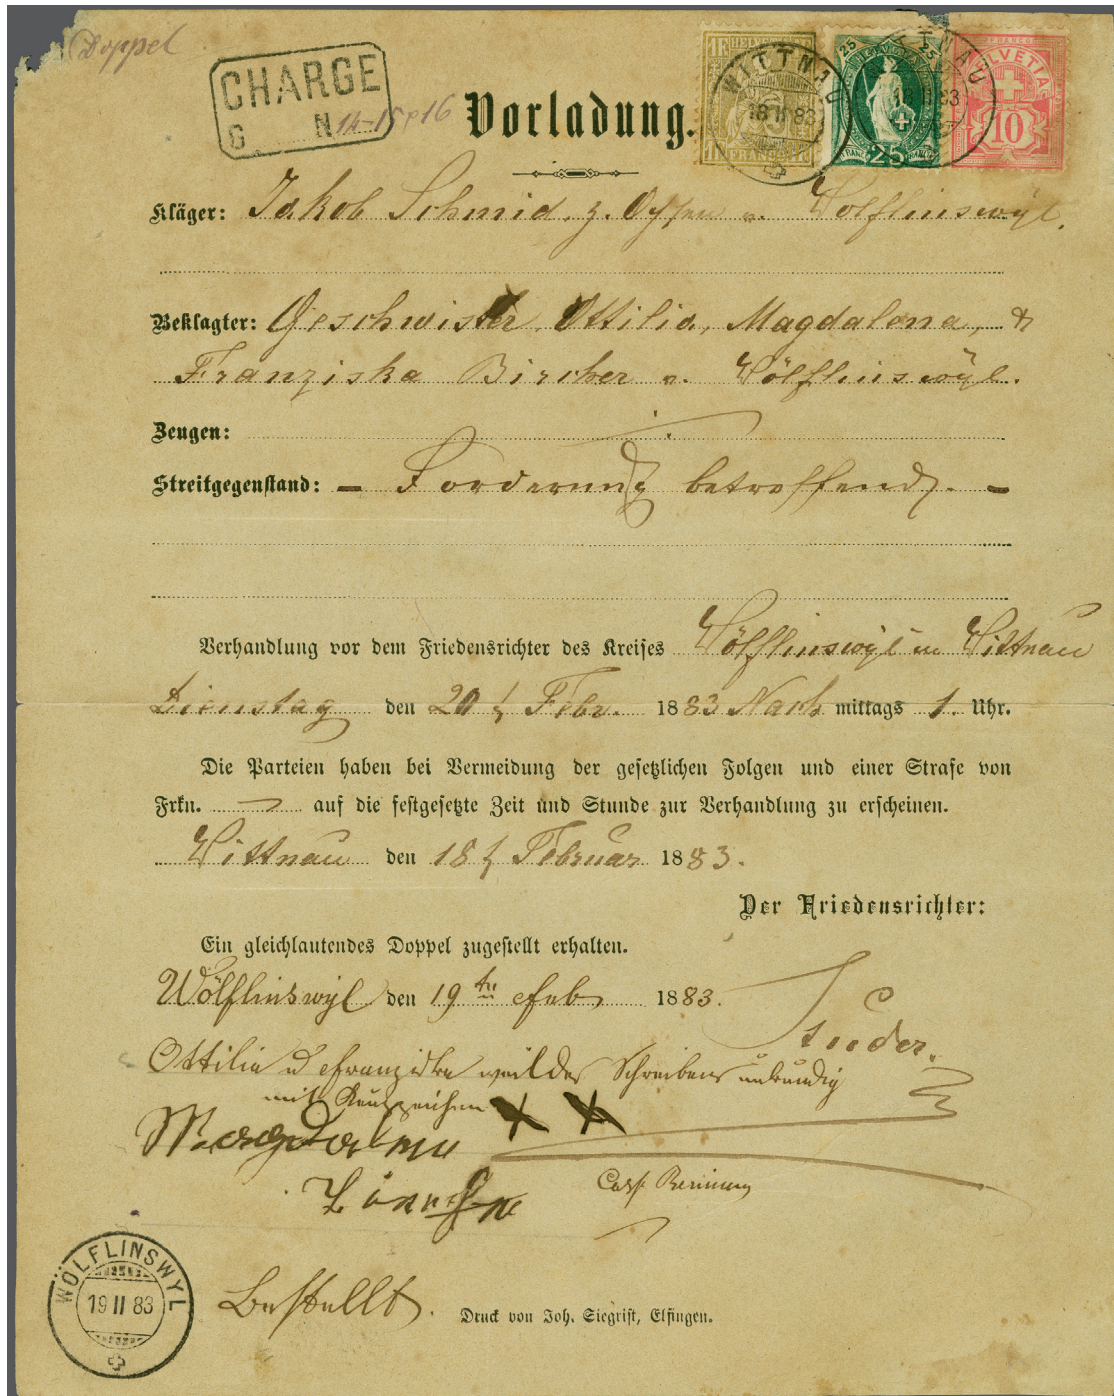 Doppel
CHARGE
G N 14-15 & 16
Vorladung.
1 FR HELVETIA 1 FR
1 FRANC 1
WITTNAU
18 II 83
25 HELVETIA 25
FRANCO 25 FRANCO
WITTNAU
18 II 83
FRANCO
HELVETIA
10
Kläger: Jakob Schmid, z. Ochsen v. Wölflinswyl.
Beklagter: Geschwister Ottilia, Magdalena, &
Franziska Bircher v. Wölflinswÿl.
Zeugen:
Streitgegenstand: – Forderung betreffend. –
Verhandlung vor dem Friedensrichter des Kreises Wölflinswÿl in Wittnau
Dienstag den 20. Febr. 1883 Nachmittags 1. Uhr.
Die Parteien haben bei Vermeidung der gesetzlichen Folgen und einer Strafe von
Frkn. — auf die festgesetzte Zeit und Stunde zur Verhandlung zu erscheinen.
Wittnau den 18. Februar 1883.
Der Friedensrichter:
Ein gleichlautendes Doppel zugestellt erhalten.
Wölflinswyl den 19ten Feb 1883.
Ottilia u Franziska weil des Schreibens unkundig
mit Kreuzzeichen X X
Magdalena
WÖLFLINSWYL
19 II 83
Bestellt.
Druck von Joh. Siegrist, Elfingen.